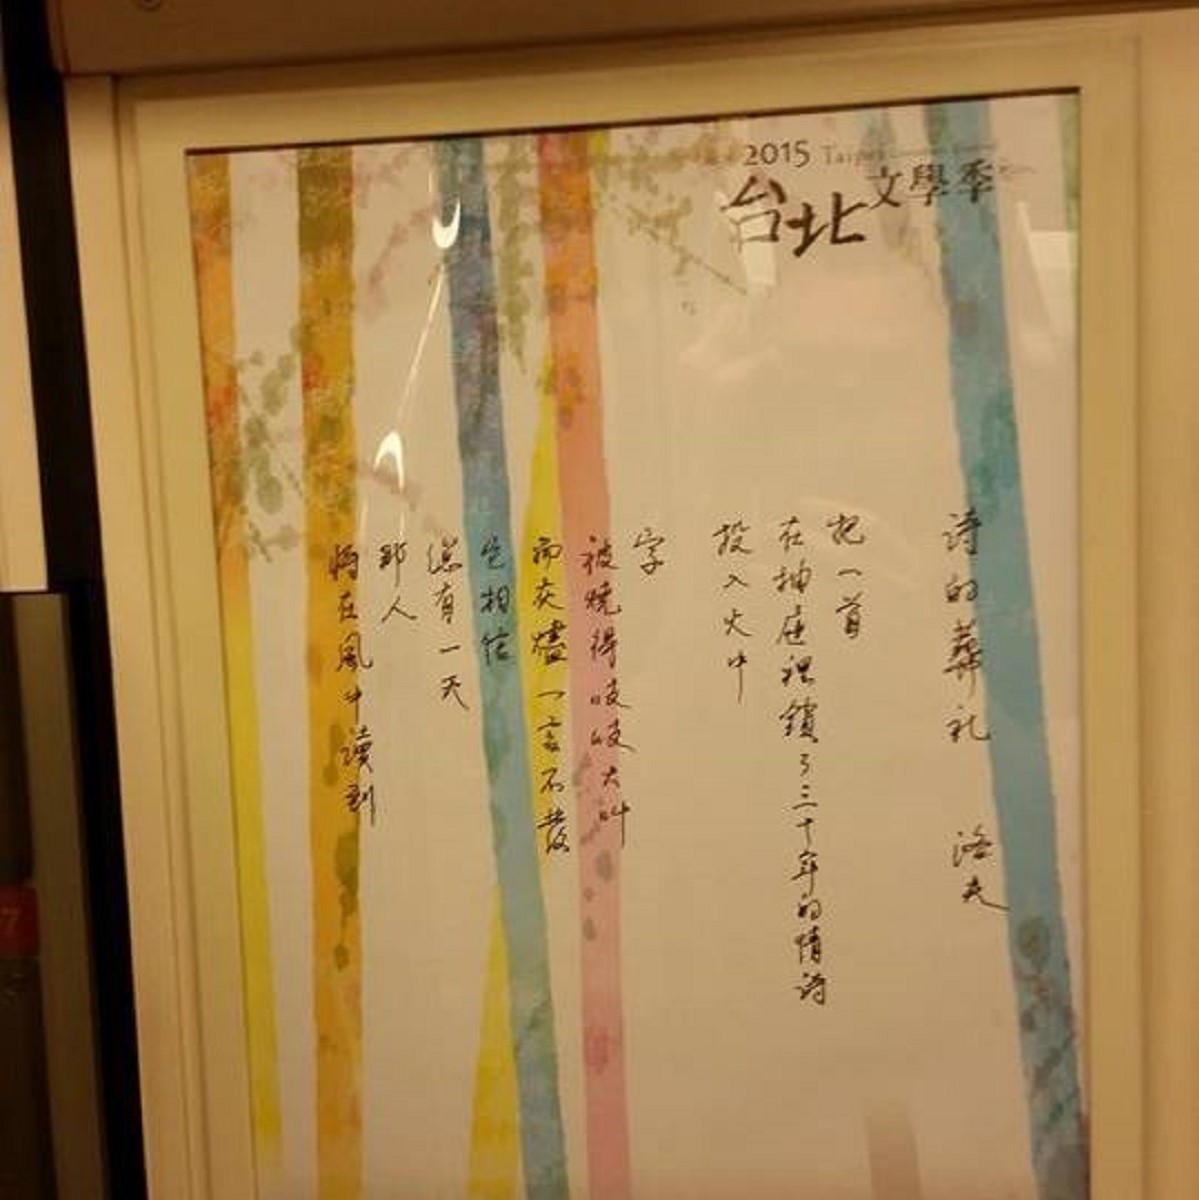 2015 Taipei
台北文學季
詩的葬礼 洛夫
把一首
在抽屜裡鎖了三十年的情詩
投入火中
字
被燒得吱吱大叫
而灰燼一言不發
它相信
總有一天
那人
將在風中讀到
7